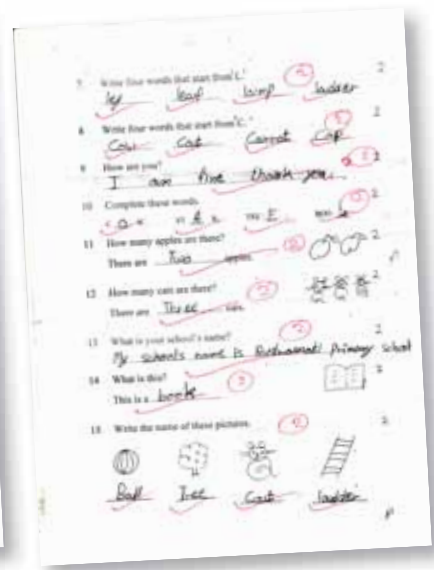 7 Write four words that start from 'L' 2
leg leaf lamp ladder
8 Write four words that start from 'C' 2
Cow Cat Carrot Cap
9 How are you? 2
I am fine thank you.
10 Complete these words. 2
11 How many apples are there? 2
There are Two apples.
12 How many cats are there? 2
There are Three cats.
13 What is your school's name? 2
My school's name is Primary school
14 What is this? 2
This is a book
15 Write the name of these pictures. 2
Ball Tree Cat ladder